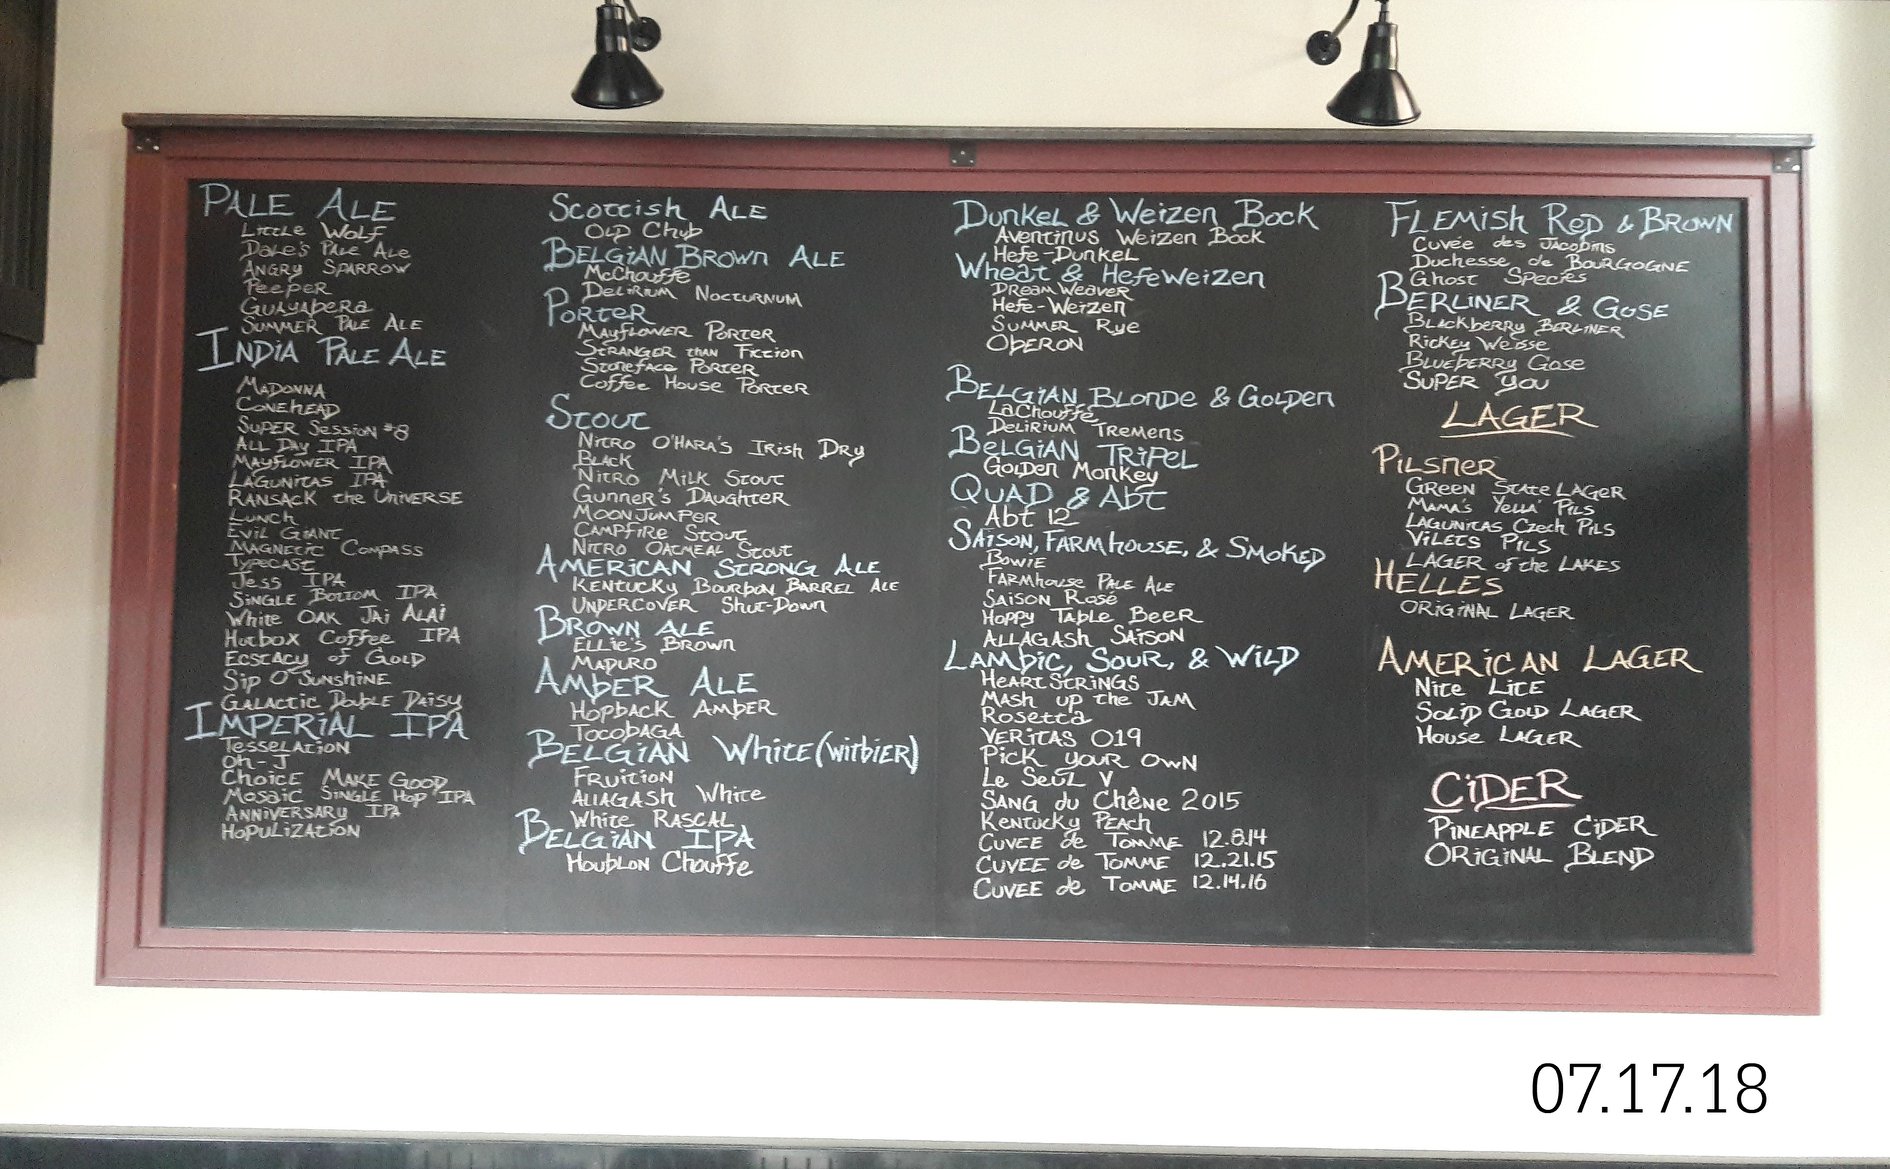 PALE ALE
LITTLE WOLF
DALE'S PALE ALE
ANGRY SPARROW
PEEPER
GUAYABERA
SUMMER PALE ALE
INDIA PALE ALE
MADONNA
CONEHEAD
SUPER SESSION #8
ALL DAY IPA
MAYFLOWER IPA
LAGUNITAS IPA
RANSACK the UNIVERSE
LUNCH
EVIL GIANT
MAGNETIC COMPASS
TYPECAST
JESS IPA
SINGLE BOTTOM IPA
WHITE OAK JAI ALAI
HOTBOX COFFEE IPA
ECSTACY of GOLD
SIP O' SUNSHINE
GALACTIC DOUBLE DAISY
IMPERIAL IPA
TESSELATION
OH-J
CHOICE MAKE GOOD
MOSAIC SINGLE HOP IPA
ANNIVERSARY IPA
HOPULIZATION
SCOTTISH ALE
OLD CHUB
BELGIAN BROWN ALE
McCHOUFFE
DELIRIUM NOCTURNUM
PORTER
MAYFLOWER PORTER
STRANGER THAN FICTION
STONEFACE PORTER
COFFEE HOUSE PORTER
STOUT
NITRO O'HARA'S IRISH DRY
BLACK
NITRO MILK STOUT
GUNNER'S DAUGHTER
MOONJUMPER
CAMPFIRE STOUT
NITRO OATMEAL STOUT
AMERICAN STRONG ALE
KENTUCKY BOURBON BARREL ALE
UNDERCOVER SHUT-DOWN
BROWN ALE
ELLIE'S BROWN
MADURO
AMBER ALE
HOPBACK AMBER
TOCOBAGA
BELGIAN WHITE (WITBIER)
FRUITION
ALLAGASH WHITE
WHITE RASCAL
BELGIAN IPA
HOUBLON CHOUFFE
DUNKEL & WEIZEN BOCK
AVENTINUS WEIZEN BOCK
HEFE-DUNKEL
WHEAT & HEFEWEIZEN
DREAMWEAVER
HEFE-WEIZEN
SUMMER RYE
OBERON
BELGIAN BLONDE & GOLDEN
LACHOUFFE
DELIRIUM TREMENS
BELGIAN TRIPEL
GOLDEN MONKEY
QUAD & ABT
ABT 12
SAISON, FARMHOUSE, & SMOKED
BOWIE
FARMHOUSE PALE ALE
SAISON ROSÉ
HOPPY TABLE BEER
ALLAGASH SAISON
LAMBIC, SOUR, & WILD
HEARTSTRINGS
MASH UP the JAM
ROSETTA
VERITAS 019
PICK YOUR OWN
LE SEUL V
SANG du CHÊNE 2015
KENTUCKY PEACH
CUVEE de TOMME 12.8.14
CUVEE de TOMME 12.21.15
CUVEE de TOMME 12.14.16
FLEMISH RED & BROWN
CUVÉE des JACOBINS
DUCHESSE de BOURGOGNE
GHOST SPECIES
BERLINER & GOSE
BLACKBERRY BERLINER
RICKEY WEISSE
BLUEBERRY GOSE
SUPER YOU
LAGER
PILSNER
GREEN STATE LAGER
MAMA'S YELLA' PILS
LAGUNITAS CZECH PILS
VILETS PILS
LAGER of the LAKES
HELLES
ORIGINAL LAGER
AMERICAN LAGER
NITE LITE
SOLID GOLD LAGER
HOUSE LAGER
CIDER
PINEAPPLE CIDER
ORIGINAL BLEND
07.17.18